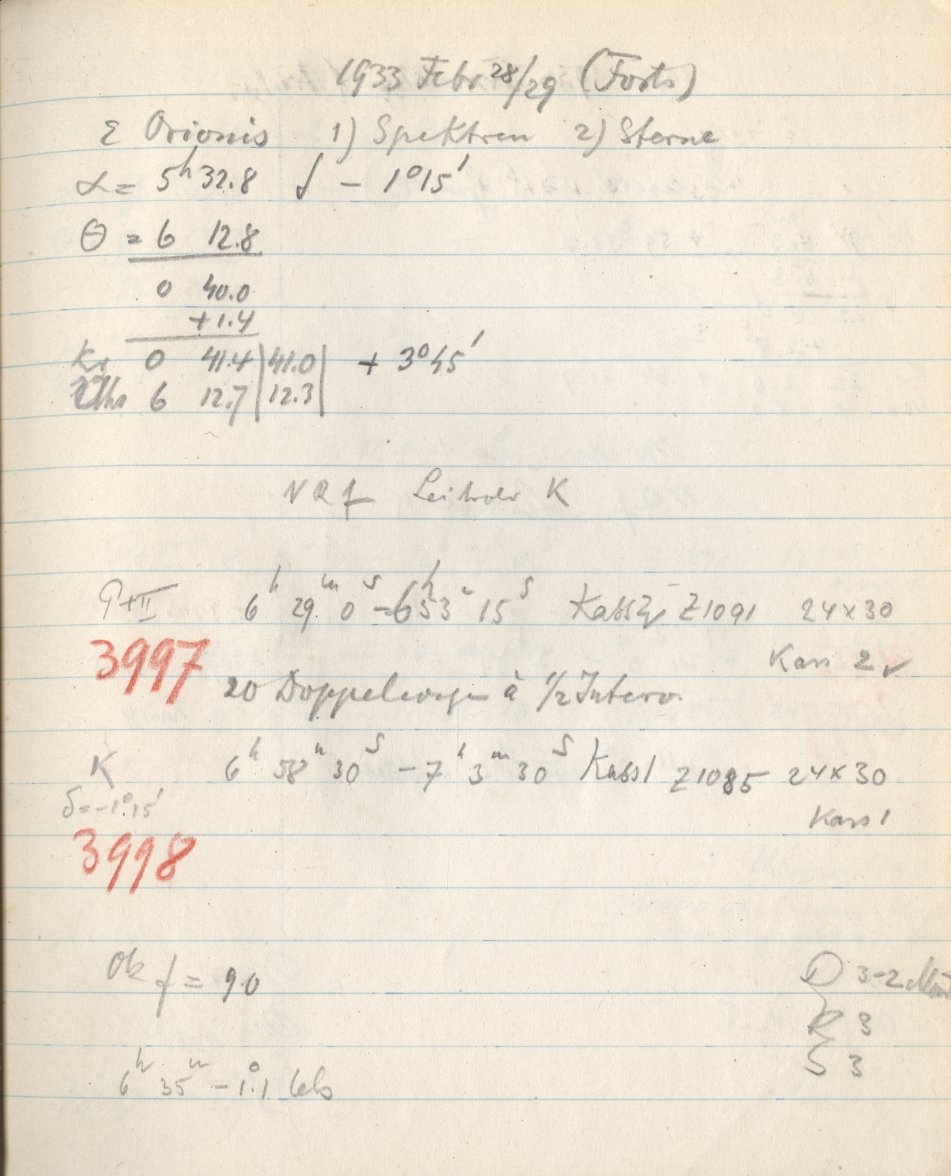 1933 Febr 28/29 (Forts)
ε Orionis 1) Spektren 2) Sterne
α = 5h 32.8 δ - 1°15'
Θ = 6 12.8
0 40.0
+1.4
Kr 0 41.4 | 41.0 | + 3°45'
Uhr 6 12.7 | 12.3 |
NRf Leitrohr K
P+II 6h 29m 0s - 6h 53m 15s Kass 2 Z1091 24x30
Kass 2 ✓
3997
20 Doppelwege à 1/2 Interv.
K 6h 58m 30s - 7h 3m 30s Kass 1 Z1085 24x30
δ=-1°15'
Kass 1
3998
Ok f = 90
D 3-2
R 3
S 3
6h 35m - 1.°1